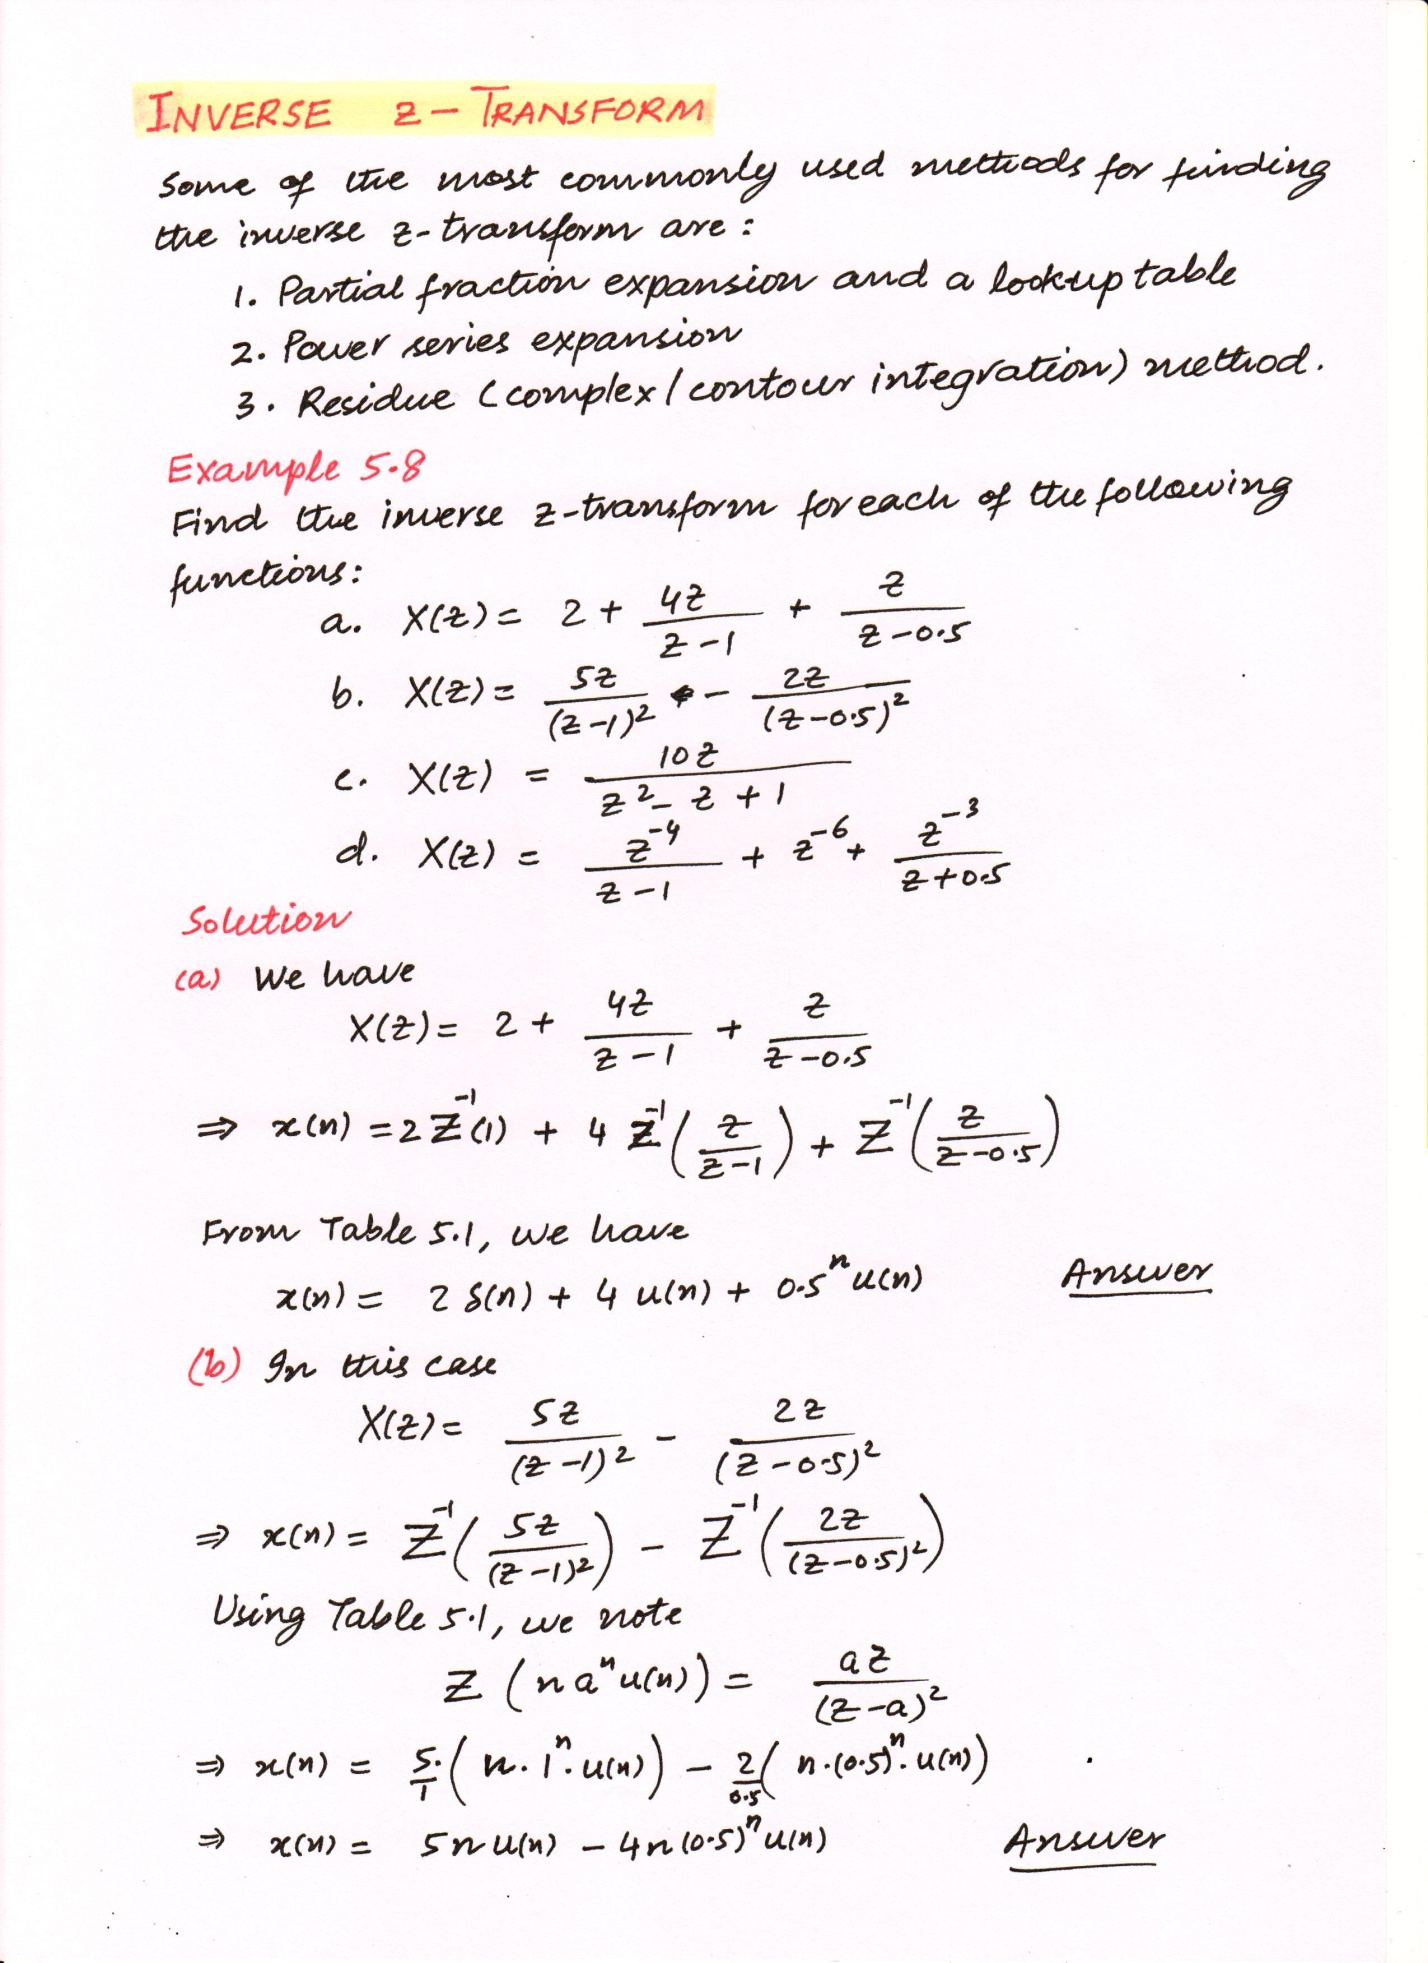 INVERSE z-TRANSFORM
Some of the most commonly used methods for finding
the inverse z-transform are:
1. Partial fraction expansion and a lookup table
2. Power series expansion
3. Residue (complex/contour integration) method.
Example 5.8
Find the inverse z-transform for each of the following
functions:
a. X(z) = 2 + 4z/(z-1) + z/(z-0.5)
b. X(z) = 5z/(z-1)² - 2z/(z-0.5)²
c. X(z) = 10z/(z²-z+1)
d. X(z) = z⁻⁴/(z-1) + z⁻⁶ + z⁻³/(z+0.5)
Solution
(a) We have
X(z) = 2 + 4z/(z-1) + z/(z-0.5)
⇒ x(n) = 2Z⁻¹(1) + 4Z⁻¹(z/(z-1)) + Z⁻¹(z/(z-0.5))
From Table 5.1, we have
x(n) = 2δ(n) + 4u(n) + 0.5ⁿu(n) Answer
(b) In this case
X(z) = 5z/(z-1)² - 2z/(z-0.5)²
⇒ x(n) = Z⁻¹(5z/(z-1)²) - Z⁻¹(2z/(z-0.5)²)
Using Table 5.1, we note
Z(naⁿu(n)) = az/(z-a)²
⇒ x(n) = 5/1·(n·1ⁿ·u(n)) - 2/0.5(n·(0.5)ⁿ·u(n))
⇒ x(n) = 5nu(n) - 4n(0.5)ⁿu(n) Answer